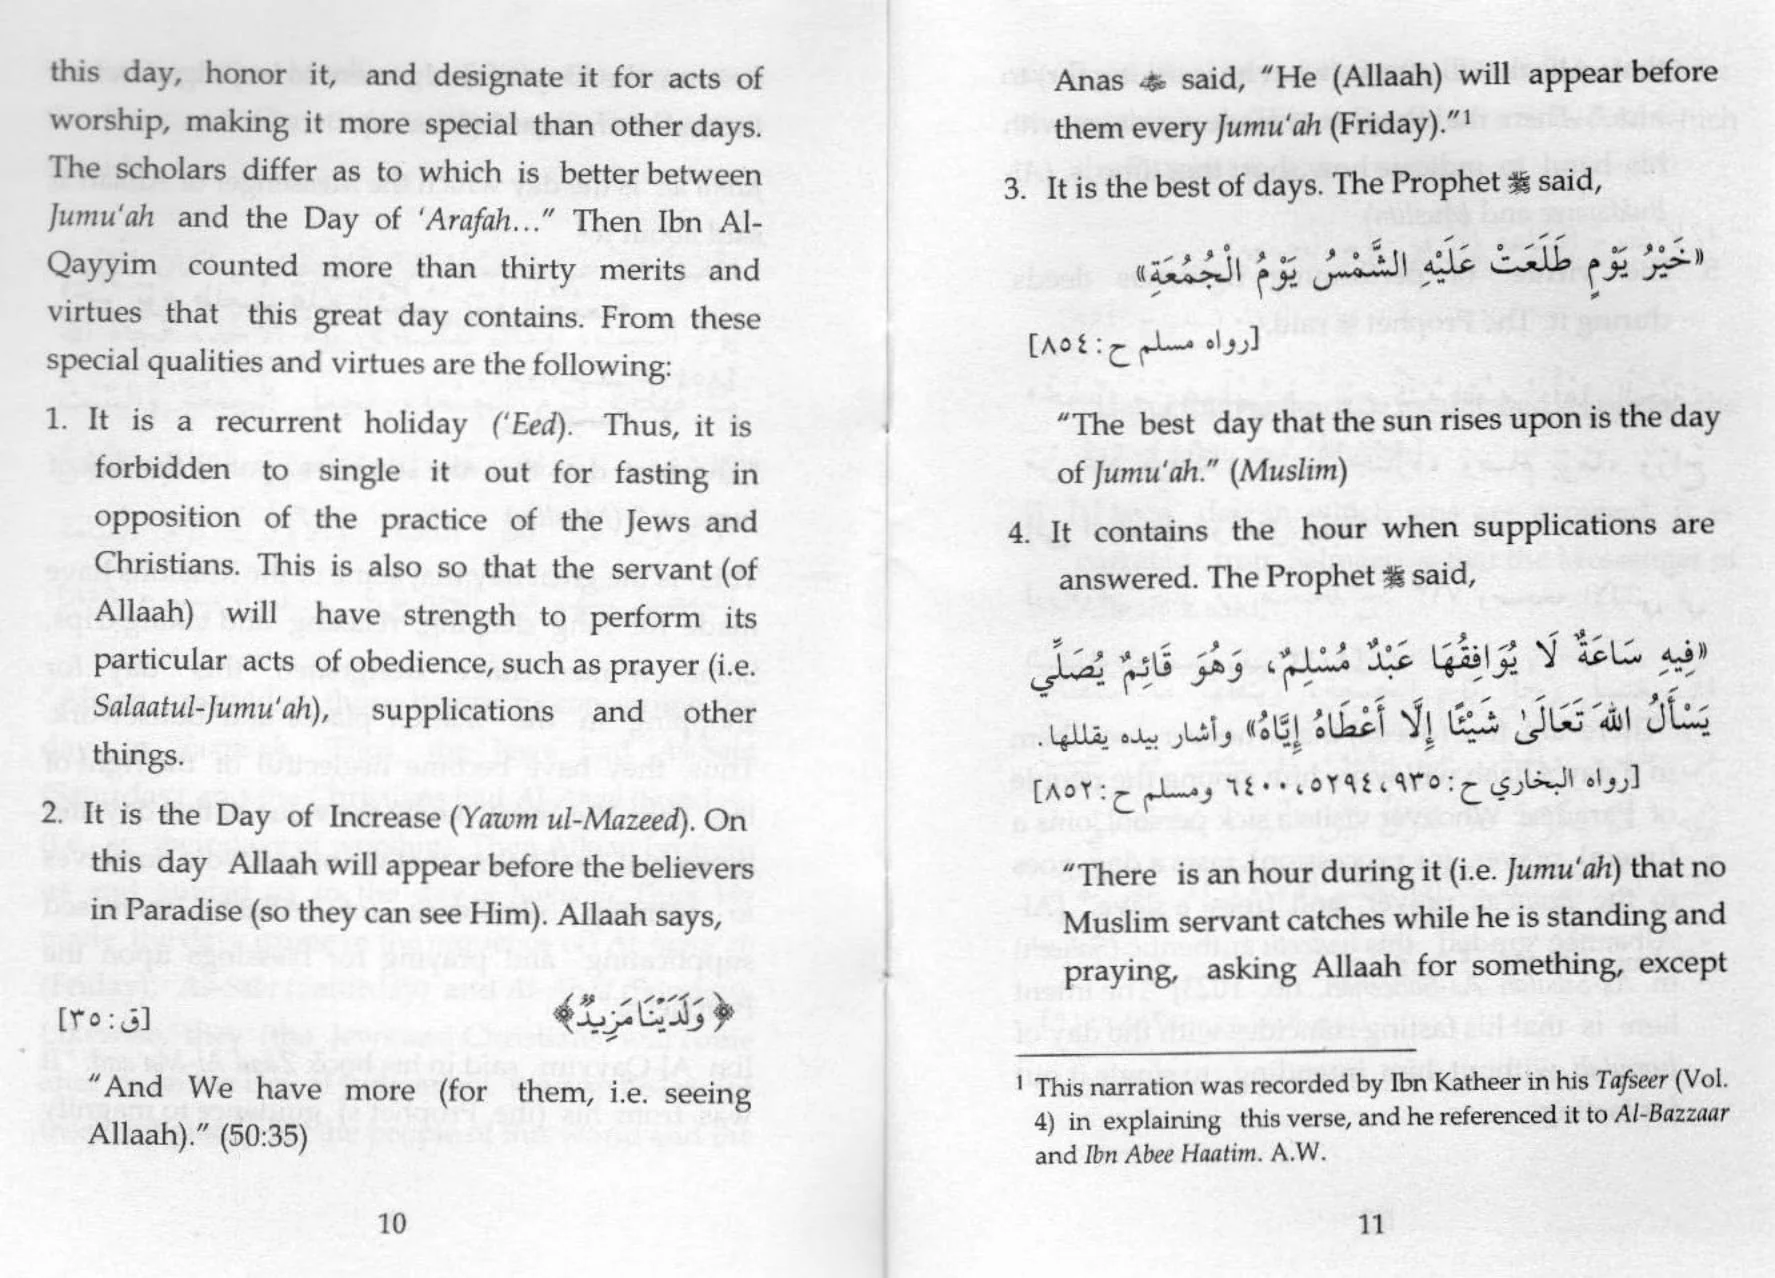 this day, honor it, and designate it for acts of
worship, making it more special than other days.
The scholars differ as to which is better between
Jumu'ah and the Day of 'Arafah..." Then Ibn Al-
Qayyim counted more than thirty merits and
virtues that this great day contains. From these
special qualities and virtues are the following:
1. It is a recurrent holiday ('Eed). Thus, it is
forbidden to single it out for fasting in
opposition of the practice of the Jews and
Christians. This is also so that the servant (of
Allaah) will have strength to perform its
particular acts of obedience, such as prayer (i.e.
Salaatul-Jumu'ah), supplications and other
things.
2. It is the Day of Increase (Yawm ul-Mazeed). On
this day Allaah will appear before the believers
in Paradise (so they can see Him). Allaah says,
﴿وَلَدَيْنَا مَزِيدٌ﴾ [ق:٣٥]
"And We have more (for them, i.e. seeing
Allaah)." (50:35)
10
Anas ﷁ said, "He (Allaah) will appear before
them every Jumu'ah (Friday)."1
3. It is the best of days. The Prophet ﷺ said,
«خَيْرُ يَوْمٍ طَلَعَتْ عَلَيْهِ الشَّمْسُ يَوْمُ الْجُمُعَةِ»
[رواه مسلم ح:٨٥٤]
"The best day that the sun rises upon is the day
of Jumu'ah." (Muslim)
4. It contains the hour when supplications are
answered. The Prophet ﷺ said,
«فِيهِ سَاعَةٌ لَا يُوَافِقُهَا عَبْدٌ مُسْلِمٌ، وَهُوَ قَائِمٌ يُصَلِّي
يَسْأَلُ اللهَ تَعَالَىٰ شَيْئًا إِلَّا أَعْطَاهُ إِيَّاهُ» وأشار بيده يقللها.
[رواه البخاري ح:٩٣٥، ٥٢٩٤، ٦٤٠٠ ومسلم ح:٨٥٢]
"There is an hour during it (i.e. Jumu'ah) that no
Muslim servant catches while he is standing and
praying, asking Allaah for something, except
1 This narration was recorded by Ibn Katheer in his Tafseer (Vol.
4) in explaining this verse, and he referenced it to Al-Bazzaar
and Ibn Abee Haatim. A.W.
11